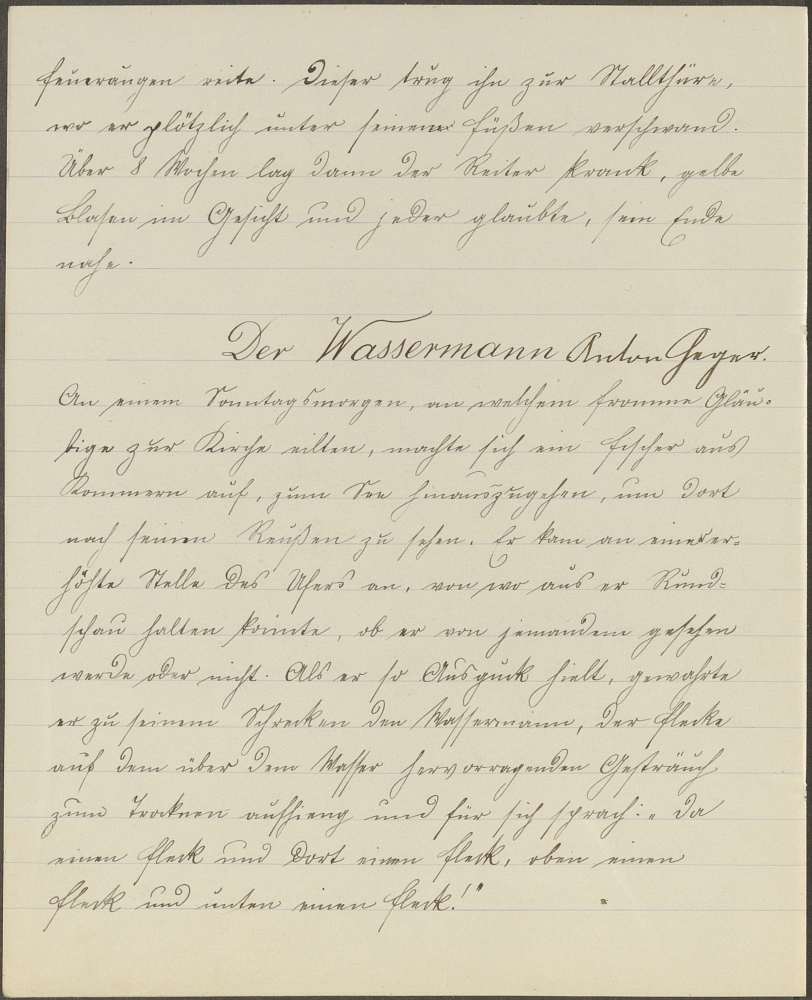 feueräugen reite. Dieser trug ihn zur Stallthüre,
wo er plötzlich unter seinen Füßen verschwand.
Über 8 Wochen lag dann der Reiter krank, gelbe
Blasen im Gesicht und jeder glaubte, sein Ende
nahe.
Der Wassermann Anton Geger.
An einem Sonntagsmorgen, an welchem fromme Gläu-
bige zur Kirche eilten, machte sich ein Fischer aus
Kommern auf, zum See hinauszugehen, um dort
nach seinen Reußen zu sehen. Er kam an einer er-
höhte Stelle des Ufers an, von wo aus er Rund-
schau halten konnte, ob er von jemandem gesehen
werde oder nicht. Als er so Ausguck hielt, gewahrte
er zu seinem Schrecken den Wassermann, der Flecke
auf dem über dem Wasser hervorragenden Gesträuch
zum Trocknen aufhieng und für sich sprach: „Da
einen Fleck und dort einen Fleck, oben einen
Fleck und unten einen Fleck!"